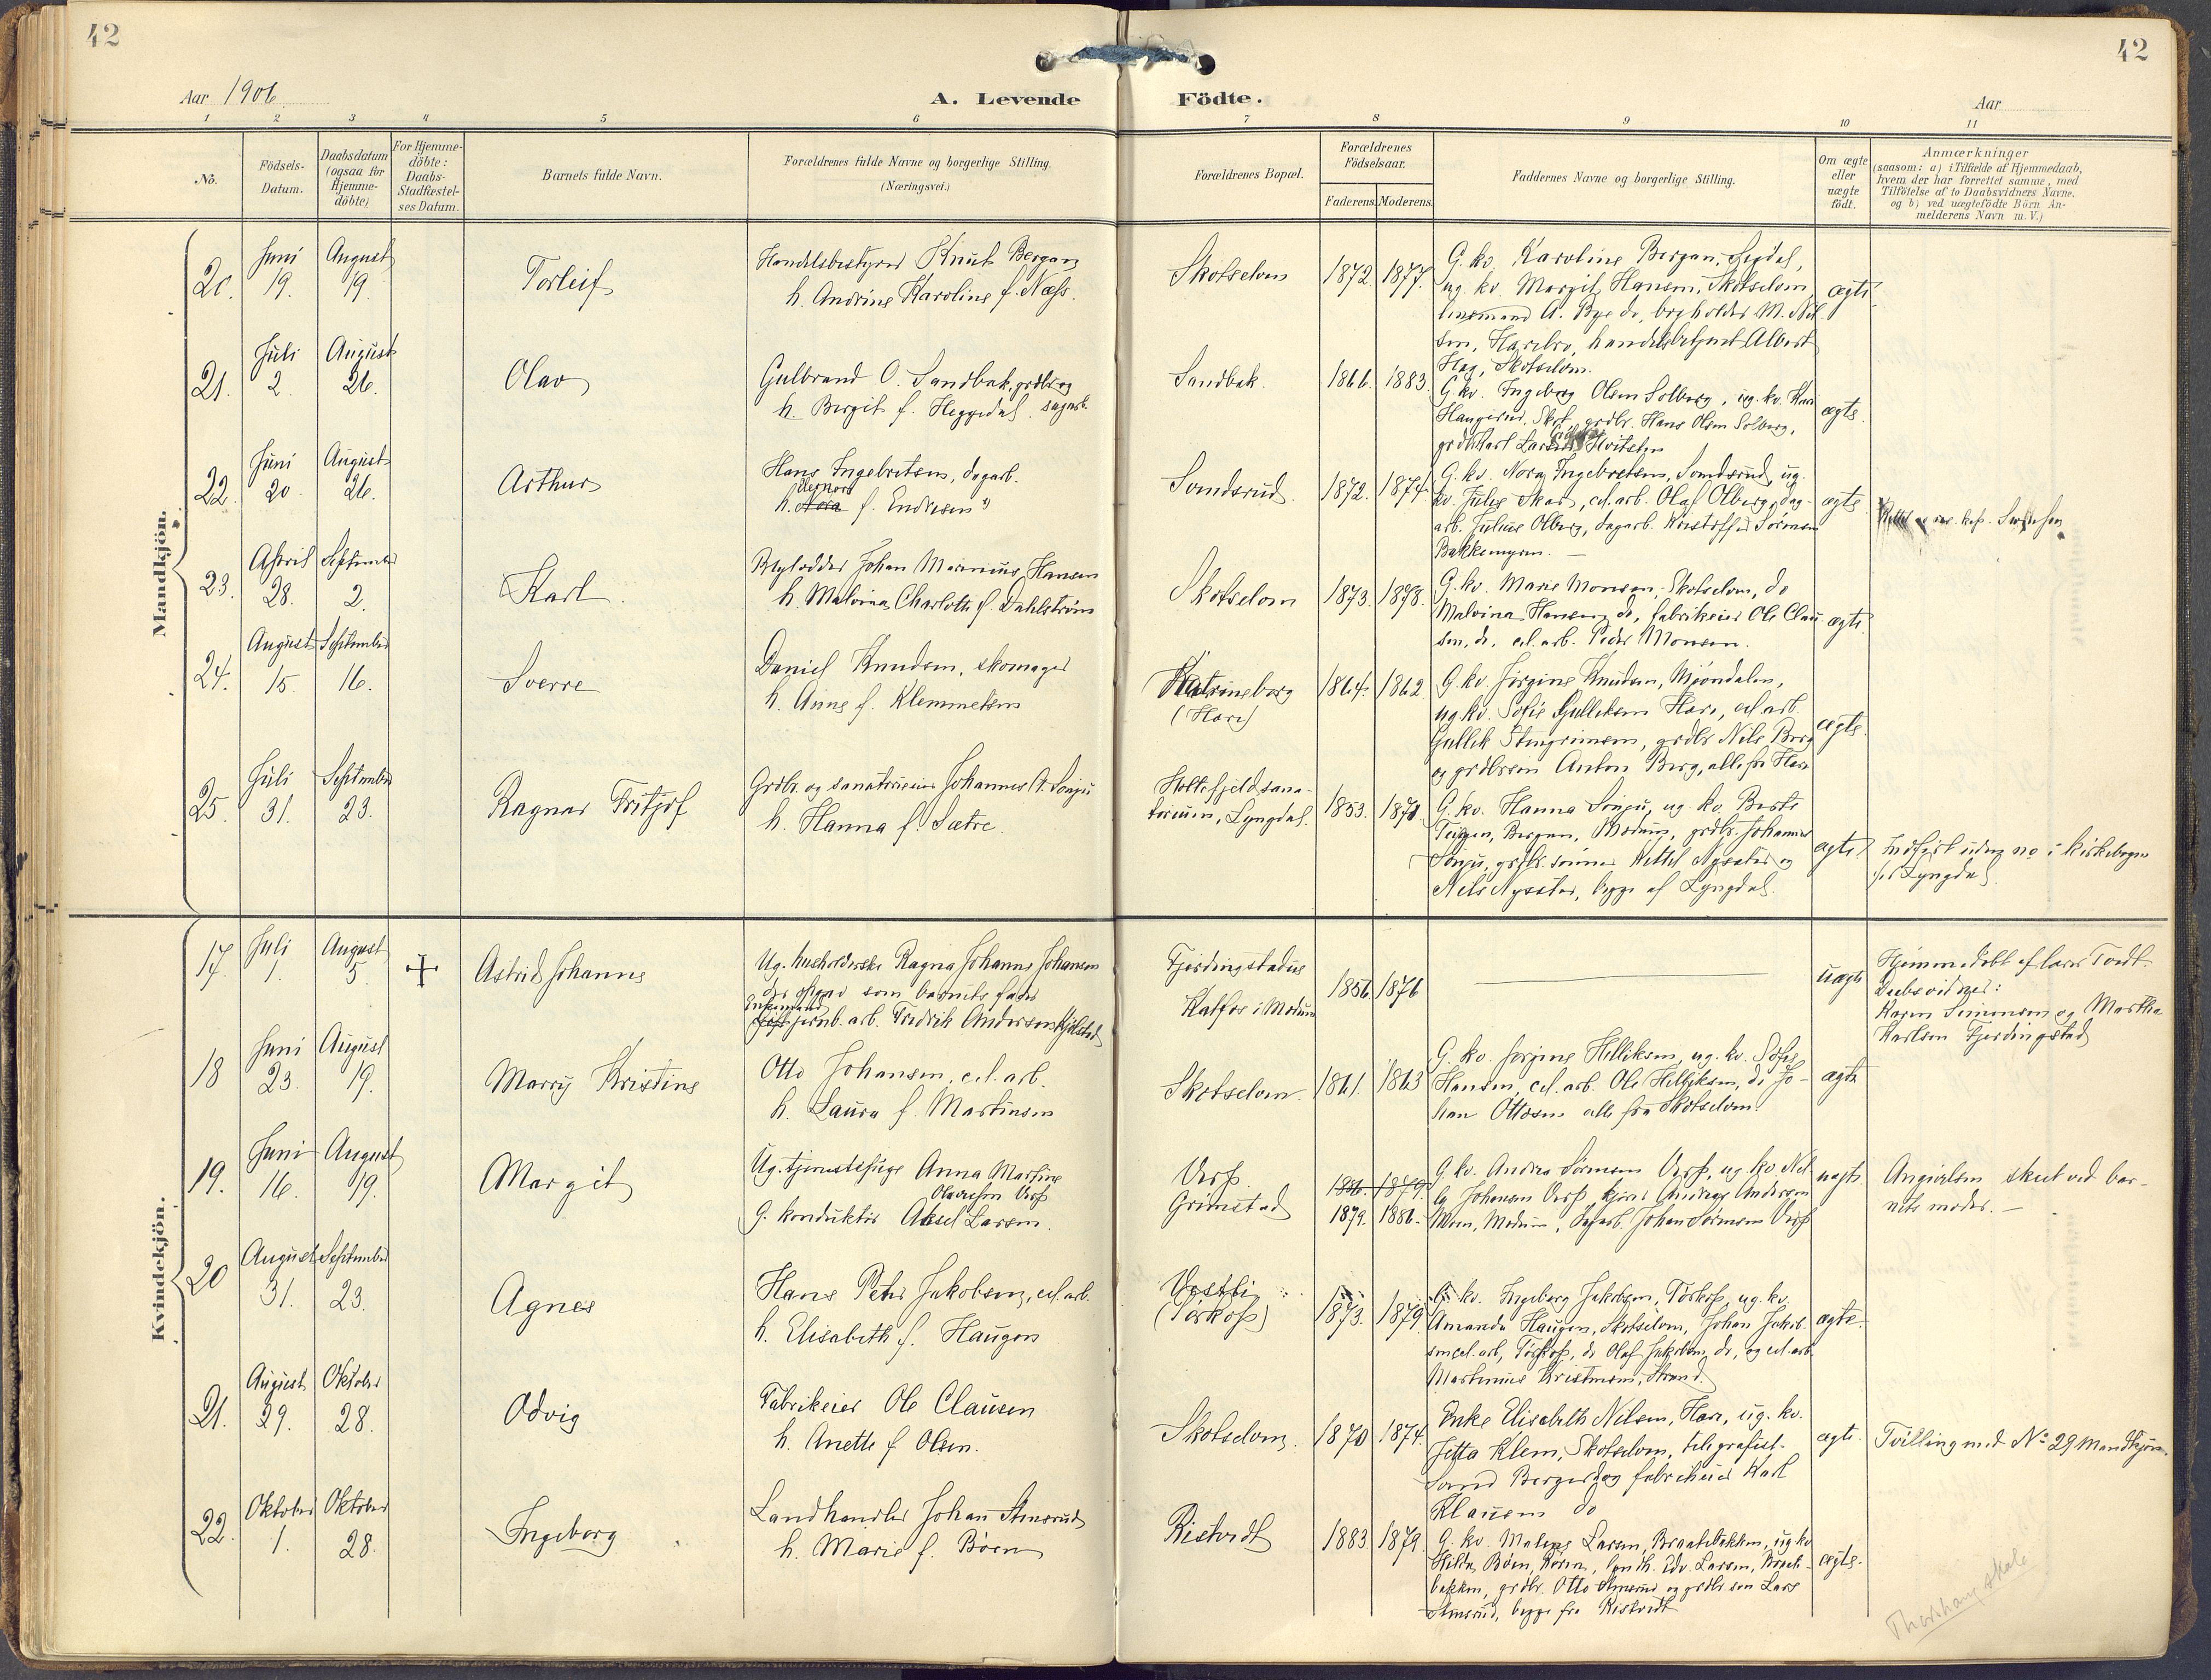 42
42
Aar 1906
A. Levende Födte.
Aar
1 2 3 4 5 6 7 8 9 10 11
No.
Födsels-Datum.
Daabsdatum (ogsaa for Hjemme-döbte)
For Hjemme-döbte: Daabs-Stadfæstel-ses Datum.
Barnets fulde Navn.
Forældrenes fulde Navne og borgerlige Stilling.
(Næringsvei.)
Forældrenes Bopæl.
Forældrenes Födselsaar.
Faderens. Moderens.
Faddernes Navne og borgerlige Stilling.
Om ægte eller uægte födt.
Anmærkninger
(saasom: a) i Tilfælde af Hjemmedaab,
hvem der har forrettet samme, med
Tilföielse af to Daabsvidners Navne,
og b) ved uægtefödte Börn An-
melderens Navn m. V.)
Mandkjön.
20. Juni 19. August 19.
Torleif
Handelsbestyrer Knut Bergan
h. Andrine Karoline f. Næss.
Skotselven 1872. 1877.
G. kv. Karoline Bergan, Sigdal,
ug. kv. Margit Hansen, Skotselven
lensmand A. Bye do, bogholder M. Niel-
sen, Harebro, handelsbetjent Albert
Hag, Skotselven.
ægte
21. Juli 2. August 26.
Olav
Gulbrand O. Sandbak, grdbr og sagarb.
h. Bergit f. Heggedal.
Sandbak. 1866. 1883.
G. kv. Ingeborg Olsen Solberg, ug. kv. Kari
Haugerud, Skot, grdbr. Hans Olsen Solberg,
ægte.
22. Juni 20. August 26.
Arthur
Hans Ingebretsen, dagarb.
h. Nora Elenora f. Endresen
Somdsrud. 1872. 1874.
G. kv. Nora Ingebretsen, Somdsrud, ug.
kv. Julie Skar, cel. arb. Olaf Olberg, dag-
arb. Julius Olberg, dagarb. Kristoffer Sørensen
Bakkemyren. —
ægte.
23. April 28. September 2.
Karl
Reglødder Johan Marinius Hansen
h. Malvina Charlotte f. Dahlström
Skotselven 1873. 1878.
G. kv. Marie Monsen, Skotselven, do
Malvina Hansen do, fabrikeier Ole Clau
sen, do, cel. arb. Peder Monsen.
ægte.
24. August 15. September 16.
Sverre
Daniel Knudsen, skomager
h. Anne f. Klemmetsen
Katrineborg (Hare) 1864. 1862
G. kv. Jørgine Knudsen, Mjøndalen,
ug. kv. Sofie Gulliksen Hare, cel arb
Gullik Stengrimsen, grdbr Nils Berg
og grdbrsøn Anton Berg, alle fra Hare
ægte.
25. Juli 31. September 23.
Ragnar Fritjof
Grdbr. og sanatorieeier Johannes A. Sønju
h. Hanna f. Sætre.
Holtefjeld sana-
torium, Lyngdal. 1853. 1870
G. kv. Hanna Sønju, ug. kv. Berte
Teigen, Bergan, Modum, grdbr. Johannes
Sønju, grdbr. sønner Kittil Nysæter og
Nils Nysæter, begge af Lyngdal.
ægte
Indført uden no i kirkebogen
for Lyngdal.
Kvindekjön.
17. Juli 1. August 5. +
Astrid Johanne
Ug. husholderske Ragna Johanne Johansen
der opgav som barnets fader
Enkemand jernb. arb. Fredrik Andersen Hjelstad
Fjerdingstadeie
Katfos i Modum 1856 1876
uægte
Hjemmedøbt af lærer Tvedt.
Daabsvidner:
Karen Simonsen og Martha
Karlsen Fjerdingstad
18 Juni 23. August 19.
Marry Kristine
Otto Johansen, cel. arb.
h. Laura f. Martinsen
Skotselven. 1861. 1863
G. kv. Jørgine Helliksen, ug. kv. Sofie
Hansen, cel. arb. Ole Helliksen, do Jo-
han Ottosen alle fra Skotselven.
ægte
19. Juni 16. August 19.
Margit
Ug. tjenestepige Anna Martine
Olavesen Verp
G. konduktør Aksel Larsen.
Verp.
Grimstad
1886. 1879.
1879. 1886.
G. kv. Andrea Sørensen Verp, ug. kv. Nel-
ly Johansen Verp, kjører Andreas Andersen
Moen, Modum, dagarb. Johan Sørensen Verp
uægte.
Angivelsen skeet ved bar-
nets moder. —
20 August 31. September 23.
Agnes
Hans Peter Jakobsen, cel. arb.
h. Elisabeth f. Haugen
Vestli
(Torkop) 1873. 1879
G. kv. Ingeborg Jakobsen, Torkop, ug. kv.
Amanda Haugen, Skotselven, Johan Jakob-
sen cel. arb, Torkop, do Olaf Jakobsen, do, og cel. arb.
Martinius Kristensen, Strand.
ægte.
21. August 29. Oktober 28.
Odvig
Fabrikeier Ole Clausen
h. Anette f Olsen.
Skotselven. 1870 1874.
Enke Elisabeth Nilsen, Hare, ug. kv.
Jetta Klem, Skotselven, telegrafist
og fabrikeier Karl
Klausen do
ægte.
Tvilling med No 29 Mandkjøn.
22. Oktober 1. Oktober 28.
Ingeborg
Landhandler Johan Stensrud
h. Marie f. Bøen
Ristvedt 1883 1879.
G. kv. Malene Larsen, Braatebakken, ug kv
Hilda Bøen, Bøen, Edv. Larsen, Braate-
bakken, grdbr. Otto Stensrud og grdbr søn Lars
Stensrud, begge fra Ristvedt
ægte.